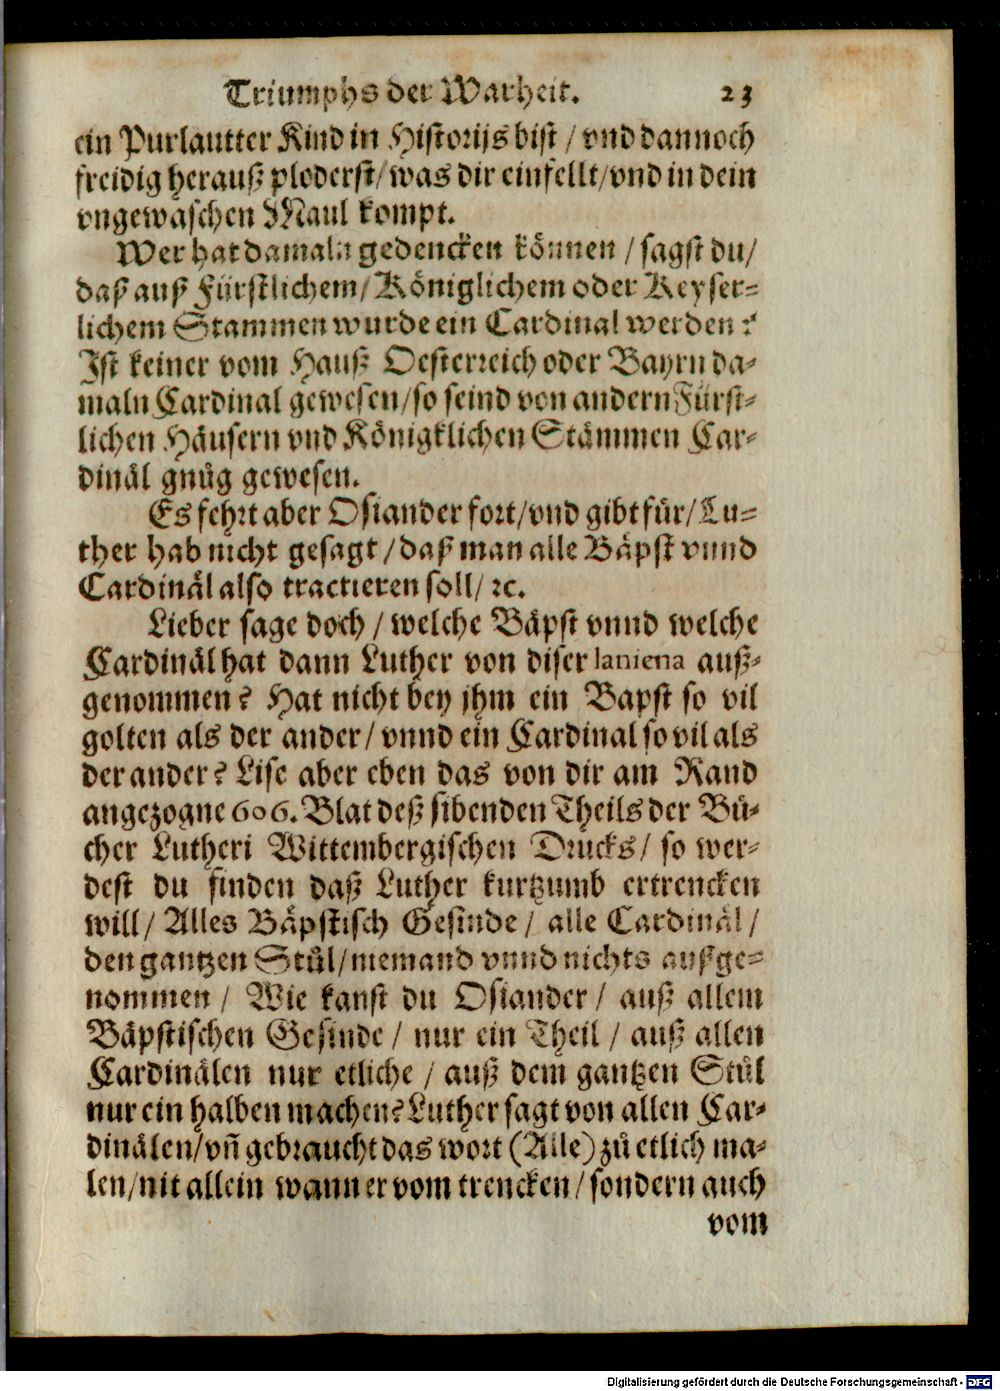 Triumphs der Warheit. 23
ein Purlautter Kind in Historijs bist / vnd dannoch
freidig herauß ploderst/was dir einfellt/vnd in dein
vngewaschen Maul kompt.
Wer hat damaln gedencken können / sagst du/
daß auß Fürstlichem/Königlichem oder Keyser-
lichem Stammen wurde ein Cardinal werden?
Ist keiner vom Hauß Oesterreich oder Bayrn da-
maln Cardinal gewesen/so seind von andern Fürst-
lichen Häusern vnd Königklichen Stämmen Car-
dinäl gnůg gewesen.
Es fehrt aber Osiander fort/vnd gibt für/Lu-
ther hab nicht gesagt /daß man alle Bäpst vnnd
Cardinäl also tractieren soll/ ꝛc.
Lieber sage doch / welche Bäpst vnnd welche
Cardinäl hat dann Luther von diser laniena auß-
genommen? Hat nicht bey jhm ein Bapst so vil
golten als der ander/ vnnd ein Cardinal so vil als
der ander? Lise aber eben das von dir am Rand
angezogne 606. Blat deß sibenden Theils der Bü-
cher Lutheri Wittembergischen Drucks/ so wer-
dest du finden daß Luther kurtzumb ertrencken
will/ Alles Bäpstisch Gesinde/ alle Cardinäl/
den gantzen Stůl/niemand vnnd nichts außge-
nommen / Wie kanst du Osiander / auß allem
Bäpstischen Gesinde / nur ein Theil / auß allen
Cardinälen nur etliche / auß dem gantzen Stůl
nur ein halben machen? Luther sagt von allen Car-
dinälen/vñ gebraucht das wort (Alle) zů etlich ma-
len/nit allein wann er vom trencken/sondern auch
vom
Digitalisierung gefördert durch die Deutsche Forschungsgemeinschaft - DFG